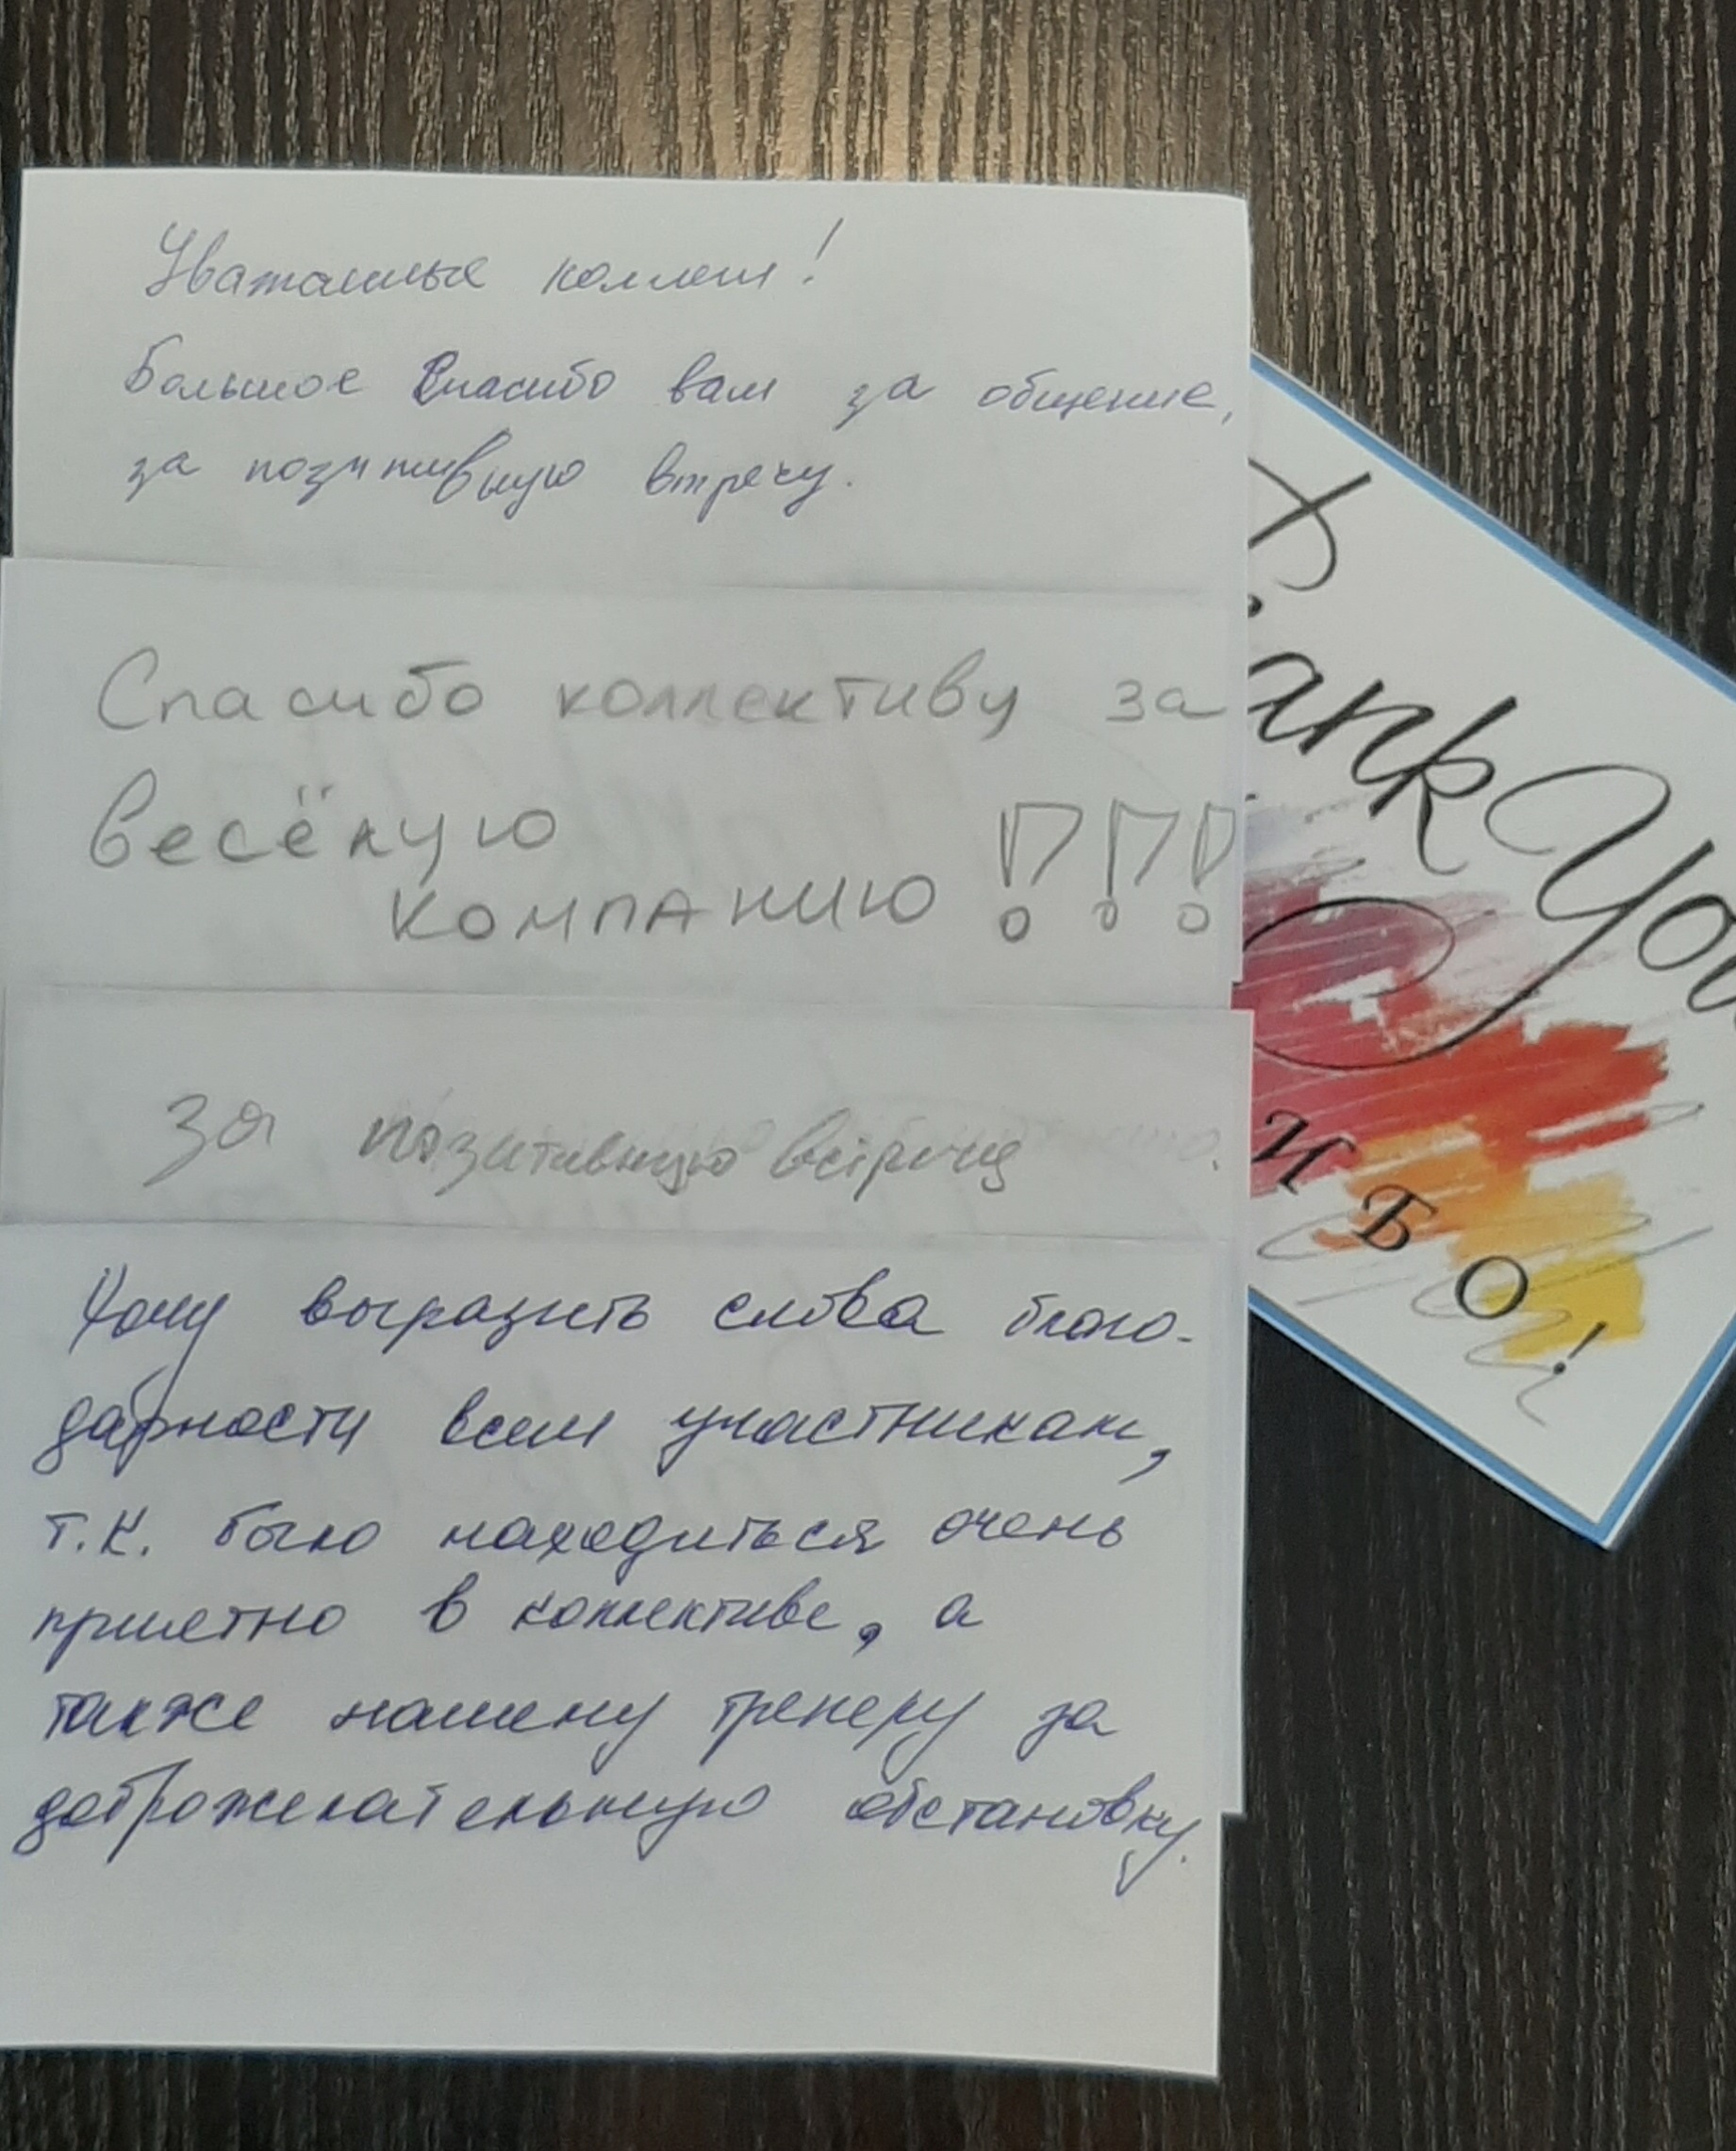 Уважаемые коллеги!
Большое Спасибо вам за общение,
за позитивную втречу.
Спасибо коллективу за
весёлую
компанию !!!
за позитивную встречу
Хочу выразить слова благо-
дарности всем участникам,
т.к. было находиться очень
приятно в коллективе, а
также нашему тренеру за
доброжелательную обстановку.
Thank You
ИБО!